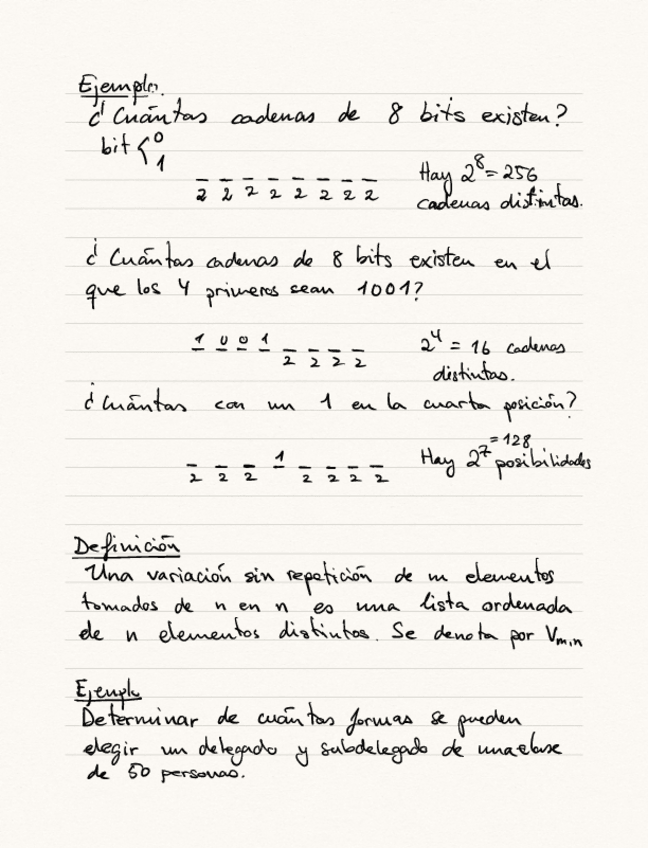 Ejemplo.
¿Cuántas cadenas de 8 bits existen?
bit { 0
1
2 2 2 2 2 2 2 2
Hay 2⁸ = 256
cadenas distintas.
¿Cuántas cadenas de 8 bits existen en el
que los 4 primeros sean 1001?
1 0 0 1 2 2 2 2
2⁴ = 16 cadenas
distintas.
¿Cuántas con un 1 en la cuarta posición?
2 2 2 1 2 2 2 2
Hay 2⁷ = 128 posibilidades
Definición
Una variación sin repetición de m elementos
tomados de n en n es una lista ordenada
de n elementos distintos. Se denota por Vm,n
Ejemplo
Determinar de cuántas formas se pueden
elegir un delegado y subdelegado de una clase
de 50 personas.